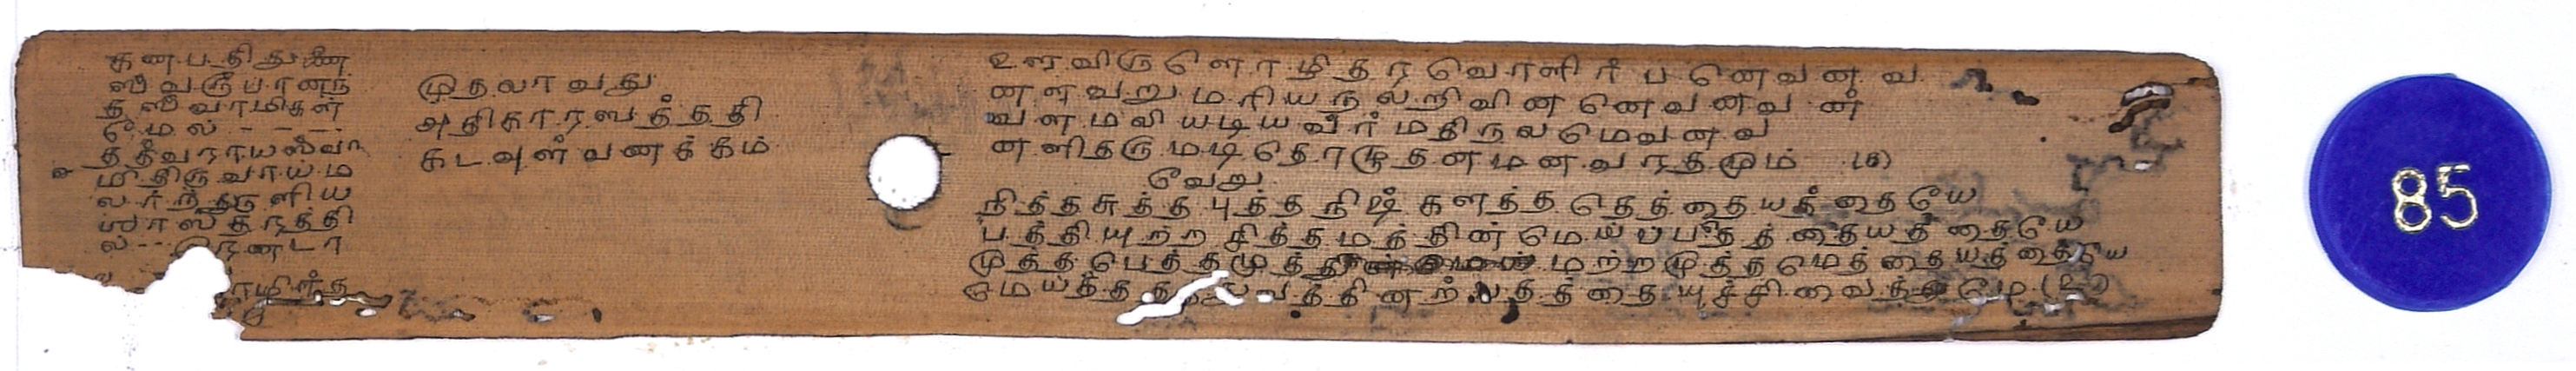 கணபதிதுணை
ஸ்வரூபானந்
த ஸ்வாமிகள்
மேல் - - -
தத்வராயஸ்வா
மி திருவாய்ம
லர்ந்தருளிய
ஸாஸ்த்ரத்தி
ல் -- இரண்டா
முதலாவது
அதிகாரஸத்ததி
கடவுள் வணக்கம்
உளவிருளொழிதர வொளிர் பனெவன வ
னளவறு மரியநலறிவின னெவனவ ன்
வள மலியடியவர் மதிநலமெவன வ
னளிதரு மடிதொடூதனமனவரதமும் (௧)
வேறு
நித்தசுத்த புத்தநிஷ்களத்ததெத்தையத்தையே
பத்தியுற்ற சித்தமத்தின் மெய்ப்பதத்தையத்தையே
முத்தபெத்தமுத்தி மற்றமுத்தமெத்தையத்தையே
மெய்த்த வத்தினற் பதத்தை யுச்சி வைத்து (௨)
85